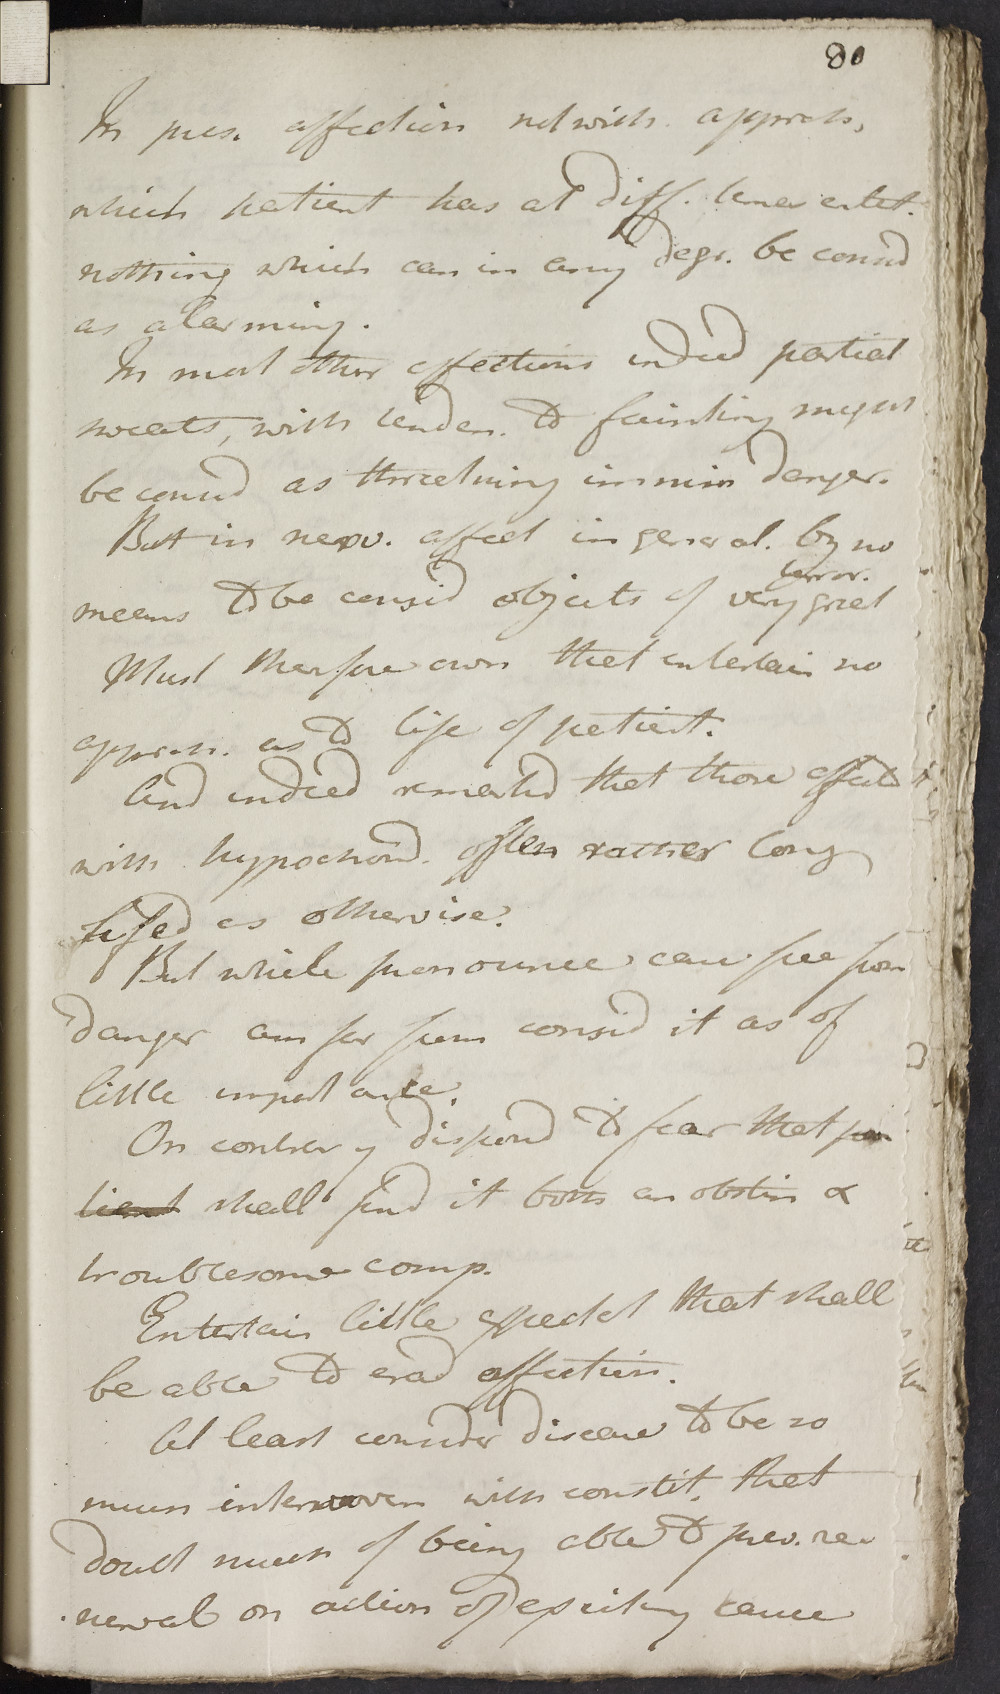 80
In pres. affection notwith. appreh.
which patient has at diff. times entert.
nothing which can in any degr. be consid
as alarming.
In most other affections indeed partial
sweats, with tenden. to fainting might
be consid as threatning immin danger.
But in nerv. affect in general. by no
means to be consid objects of very great
terror.
Must therefore own that entertain no
appreh. as to life of patient.
And indeed remarked that those affected
with hypochond. often rather long
lifed as otherwise.
But while pronounce case free from
danger am far from consid it as of
little importance.
On contrary dispond to fear that pa
tient shall find it both an obstin &
troublesome comp.
Entertain little expectat that shall
be able to erad affection.
At least consider disease to be so
much interwoven with constit. that
doubt much of being able to prev. re
newal on action of exciting cause